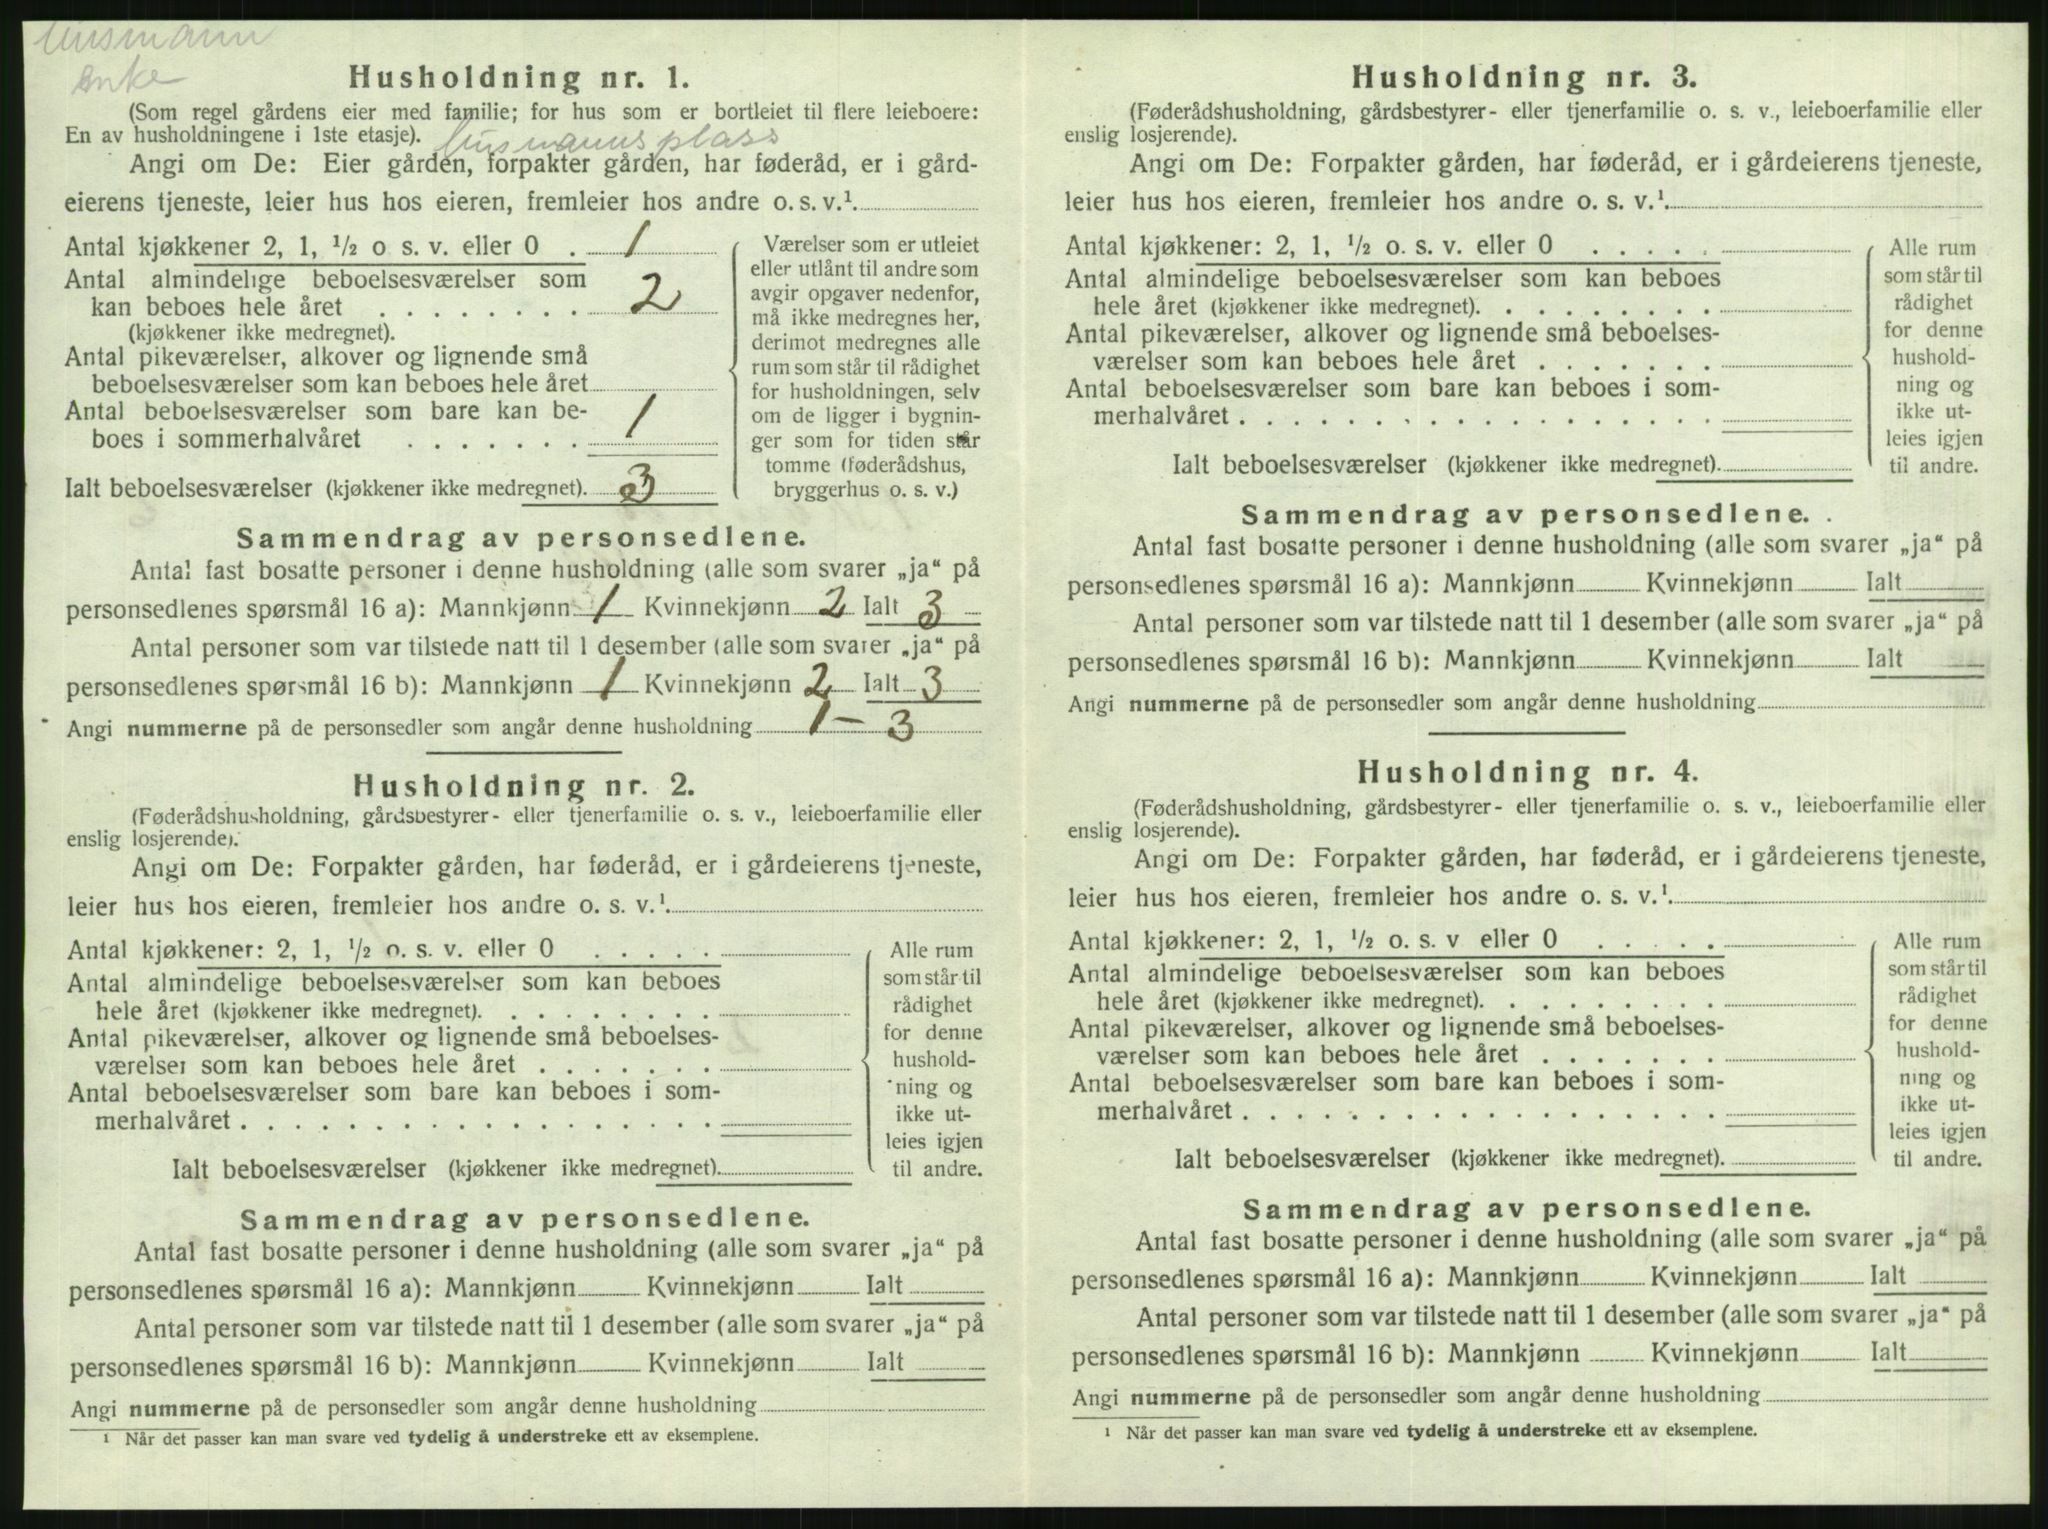 Husmann
Enke
Husholdning nr. 1.
(Som regel gårdens eier med familie; for hus som er bortleiet til flere leieboere:
En av husholdningene i 1ste etasje).
Husmannsplass
Angi om De: Eier gården, forpakter gården, har føderåd, er i gård-
eierens tjeneste, leier hus hos eieren, fremleier hos andre o. s. v.¹
Antal kjøkkener 2, 1, ½ o s. v. eller 0 . 1
Antal almindelige beboelsesværelser som
kan beboes hele året . . . . . . . . 2
(kjøkkener ikke medregnet).
Antal pikeværelser, alkover og lignende små
beboelsesværelser som kan beboes hele året
Antal beboelsesværelser som bare kan be-
boes i sommerhalvåret . . . . . . . 1
Ialt beboelsesværelser (kjøkkener ikke medregnet). 3
Værelser som er utleiet
eller utlånt til andre som
avgir opgaver nedenfor,
må ikke medregnes her,
derimot medregnes alle
rum som står til rådighet
for husholdningen, selv
om de ligger i bygnin-
ger som for tiden står
tomme (føderådshus,
bryggerhus o. s. v.)
Sammendrag av personsedlene.
Antal fast bosatte personer i denne husholdning (alle som svarer „ja“ på
personsedlenes spørsmål 16 a): Mannkjønn 1 Kvinnekjønn 2 Ialt 3
Antal personer som var tilstede natt til 1 desember (alle som svarer „ja“ på
personsedlenes spørsmål 16 b): Mannkjønn 1 Kvinnekjønn 2 Ialt 3
Angi nummerne på de personsedler som angår denne husholdning 1 – 3
Husholdning nr. 2.
(Føderådshusholdning, gårdsbestyrer- eller tjenerfamilie o. s. v., leieboerfamilie eller
enslig losjerende).
Angi om De: Forpakter gården, har føderåd, er i gårdeierens tjeneste,
leier hus hos eieren, fremleier hos andre o. s. v.¹
Antal kjøkkener: 2, 1, ½ o. s. v. eller 0 . . . . .
Antal almindelige beboelsesværelser som kan beboes
hele året (kjøkkener ikke medregnet). . . . . . . . .
Antal pikeværelser, alkover og lignende små beboelses-
værelser som kan beboes hele året . . . . . . .
Antal beboelsesværelser som bare kan beboes i som-
merhalvåret . . . . . . . . . . . . . . . . . .
Ialt beboelsesværelser (kjøkkener ikke medregnet).
Alle rum
som står til
rådighet
for denne
hushold-
ning og
ikke ut-
leies igjen
til andre.
Sammendrag av personsedlene.
Antal fast bosatte personer i denne husholdning (alle som svarer „ja“ på
personsedlenes spørsmål 16 a): Mannkjønn Kvinnekjønn Ialt
Antal personer som var tilstede natt til 1 desember (alle som svarer „ja“ på
personsedlenes spørsmål 16 b): Mannkjønn Kvinnekjønn Ialt
Angi nummerne på de personsedler som angår denne husholdning
¹ Når det passer kan man svare ved tydelig å understreke ett av eksemplene.
Husholdning nr. 3.
(Føderådshusholdning, gårdsbestyrer- eller tjenerfamilie o. s. v., leieboerfamilie eller
enslig losjerende).
Angi om De: Forpakter gården, har føderåd, er i gårdeierens tjeneste,
leier hus hos eieren, fremleier hos andre o. s. v.¹
Antal kjøkkener: 2, 1, ½ o. s. v. eller 0 . . . . .
Antal almindelige beboelsesværelser som kan beboes
hele året (kjøkkener ikke medregnet). . . . . . . . .
Antal pikeværelser, alkover og lignende små beboelses-
værelser som kan beboes hele året . . . . . . .
Antal beboelsesværelser som bare kan beboes i som-
merhalvåret . . . . . . . . . . . . . . . . . .
Ialt beboelsesværelser (kjøkkener ikke medregnet).
Alle rum
som står til
rådighet
for denne
hushold-
ning og
ikke ut-
leies igjen
til andre.
Sammendrag av personsedlene.
Antal fast bosatte personer i denne husholdning (alle som svarer „ja“ på
personsedlenes spørsmål 16 a): Mannkjønn Kvinnekjønn Ialt
Antal personer som var tilstede natt til 1 desember (alle som svarer „ja“ på
personsedlenes spørsmål 16 b): Mannkjønn Kvinnekjønn Ialt
Angi nummerne på de personsedler som angår denne husholdning
Husholdning nr. 4.
(Føderådshusholdning, gårdsbestyrer- eller tjenerfamilie o. s. v., leieboerfamilie eller
enslig losjerende).
Angi om De: Forpakter gården, har føderåd, er i gårdeierens tjeneste,
leier hus hos eieren, fremleier hos andre o. s. v.¹
Antal kjøkkener: 2, 1, ½ o. s. v eller 0 . . . . .
Antal almindelige beboelsesværelser som kan beboes
hele året (kjøkkener ikke medregnet). . . . . . . . .
Antal pikeværelser, alkover og lignende små beboelses-
værelser som kan beboes hele året . . . . . . .
Antal beboelsesværelser som bare kan beboes i som-
merhalvåret . . . . . . . . . . . . . . . . . .
Ialt beboelsesværelser (kjøkkener ikke medregnet).
Alle rum
som står til
rådighet
for denne
hushold-
ning og
ikke ut-
leies igjen
til andre.
Sammendrag av personsedlene.
Antal fast bosatte personer i denne husholdning (alle som svarer „ja“ på
personsedlenes spørsmål 16 a): Mannkjønn Kvinnekjønn Ialt
Antal personer som var tilstede natt til 1 desember (alle som svarer „ja“ på
personsedlenes spørsmål 16 b): Mannkjønn Kvinnekjønn Ialt
Angi nummerne på de personsedler som angår denne husholdning
¹ Når det passer kan man svare ved tydelig å understreke ett av eksemplene.